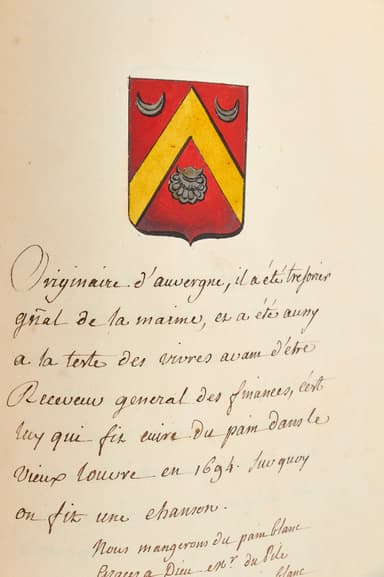 Originaire d'auvergne, il a été tresorier
gñal de la marine, et a été aussy
a la teste des vivres avant d'être
Receveur general des finances, c'est
luy qui fit cuire du pain dans le
vieux louvre en 1694. sur quoy
on fit une chanson.
Nous mangerons du pain blanc
Graces a Dieu et Mr. du Pile
blanc